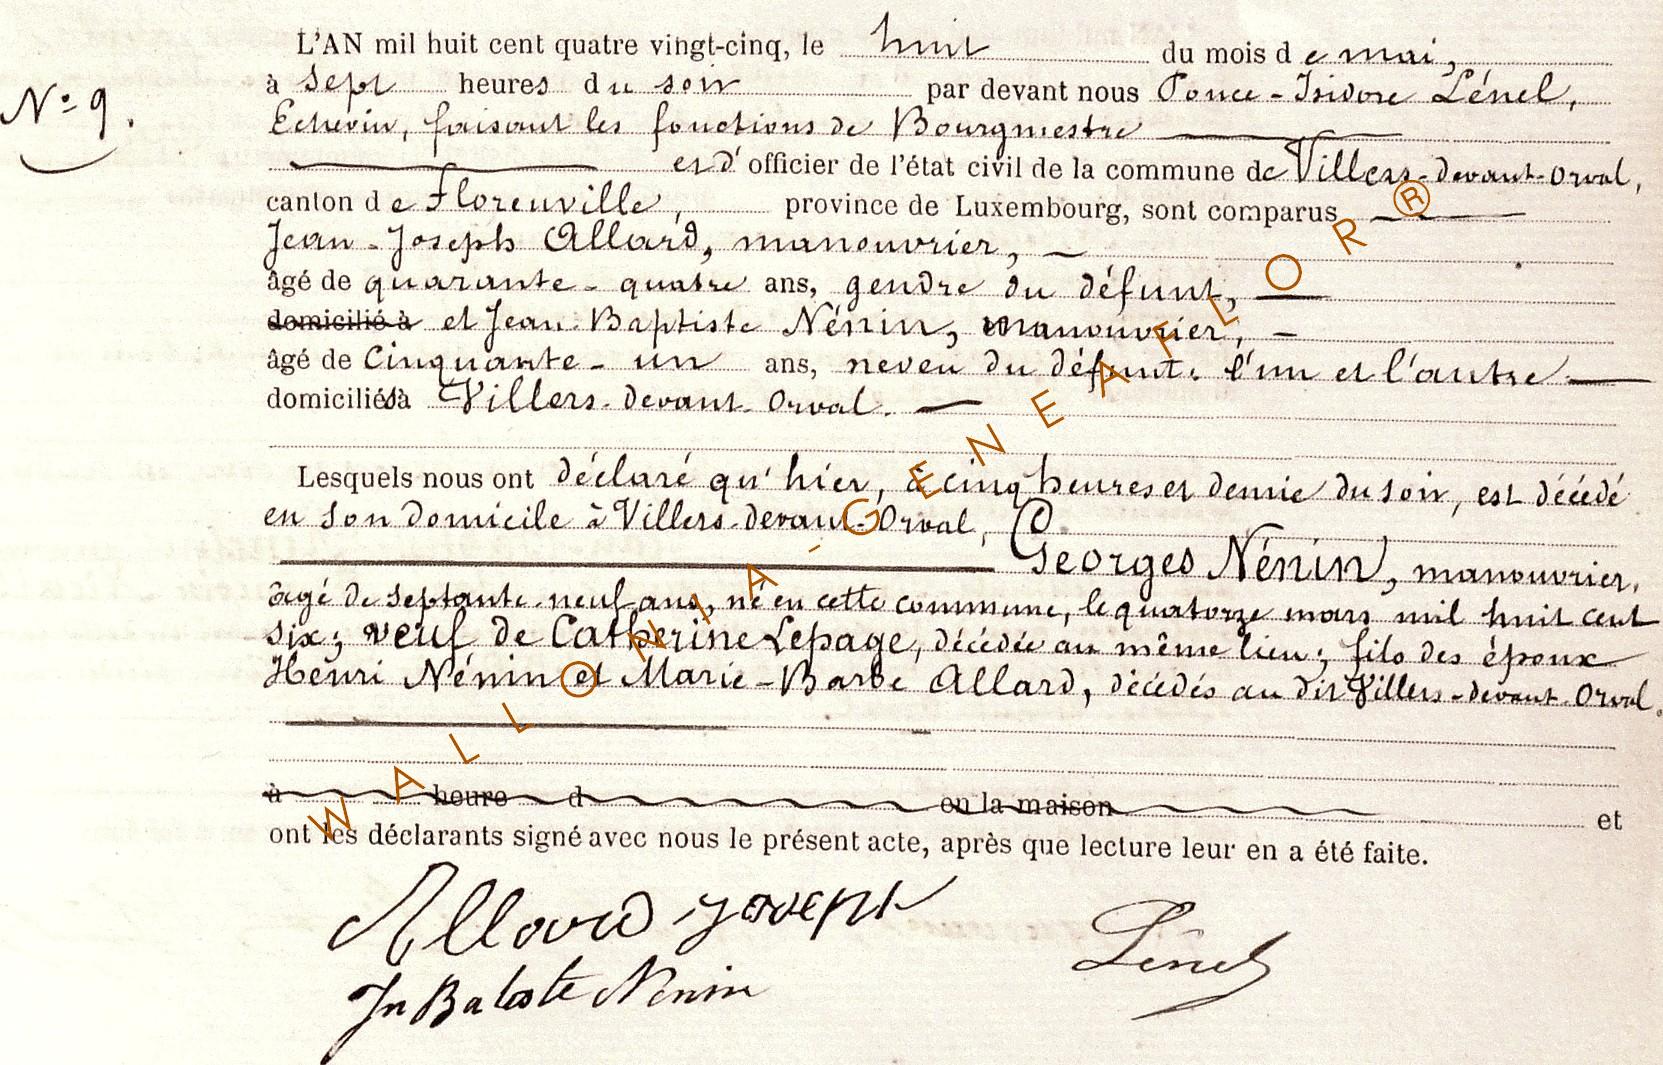 L'AN mil huit cent quatre vingt-cinq, le huit du mois de mai,
à sept heures du soir par devant nous Ponce-Isidore Lénel,
N° 9.
Echevin, faisant les fonctions de Bourgmestre
et d'officier de l'état civil de la commune de Villers-devant-Orval,
canton de Florenville, province de Luxembourg, sont comparus
Jean-Joseph Allard, manouvrier,
âgé de quarante-quatre ans, gendre du défunt,
domicilié à et Jean-Baptiste Nénin, manouvrier,
âgé de Cinquante-un ans, neveu du défunt. l'un et l'autre
domiciliés à Villers-devant-Orval.
Lesquels nous ont déclaré qu'hier, à cinq heures et demie du soir, est décédé
en son domicile à Villers-devant-Orval,
Georges Nénin, manouvrier,
âgé de septante-neuf ans, né en cette commune, le quatorze mars mil huit cent
six; veuf de Catherine Lepage, décédée au même lieu; fils des époux
Henri Nénin et Marie-Barbe Allard, décédés au dit Villers-devant-Orval.
à heure d en la maison et
ont les déclarants signé avec nous le présent acte, après que lecture leur en a été faite.
Allard joseph
Lénel
Jn Batiste Nenin
WALLONIA-GENEAFLOR®